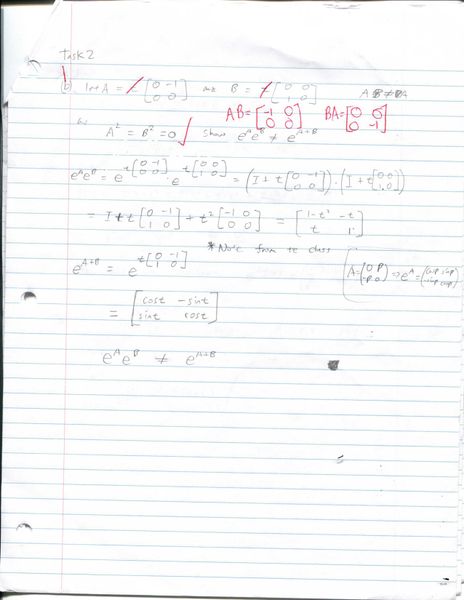 Task 2
b let A = [0 -1; 0 0] and B = [0 0; 1 0] AB ≠ BA
AB = [-1 0; 0 0] BA = [0 0; 0 -1]
A² = B² = 0 Show e^A e^B ≠ e^(A+B)
e^A e^B = e^(t[0 -1; 0 0]) · e^(t[0 0; 1 0]) = (I + t[0 -1; 0 0]) · (I + t[0 0; 1 0])
= I + t[0 -1; 1 0] + t²[-1 0; 0 0] = [1-t² -t; t 1]
* Note from class
e^(A+B) = e^(t[0 -1; 1 0])
A = (0 p; -p 0) ⇒ e^A = (cos p sin p; -sin p cos p)
= [cost -sint; sint cost]
e^A e^B ≠ e^(A+B)